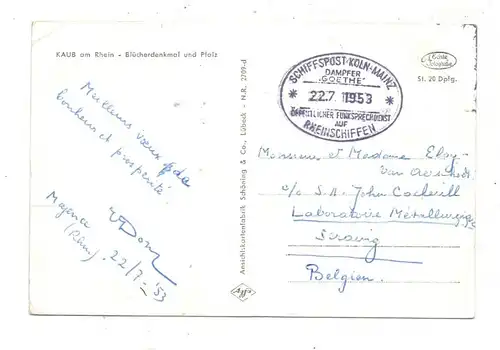 KAUB am Rhein - Blücherdenkmal und Pfalz
Echte
St. 20 Dpfg.
SCHIFFSPOST·KÖLN-MAINZ
DAMPFER
„GOETHE“
* 22.7. 1953 *
ÖFFENTLICHER FUNKSPRECHDIENST
AUF
RHEINSCHIFFEN
Meilleurs vœux de
bonheur et prospérité.
Mayence
(Rhin), 22/7-'53
Ansichtskartenfabrik Schöning & Co., Lübeck - N.R. 2709-d
Monsieur et Madame Eloy-
c/o S.A. John Cockerill
Laboratoire Métallurgique
Seraing
Belgien.
Agfa